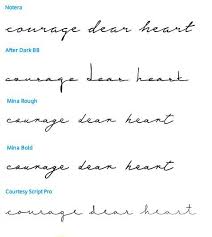 Notera
courage dear heart
After Dark BB
courage dear heart
Mina Rough
courage dear heart
Mina Bold
courage dear heart
Courtesy Script Pro
courage dear heart